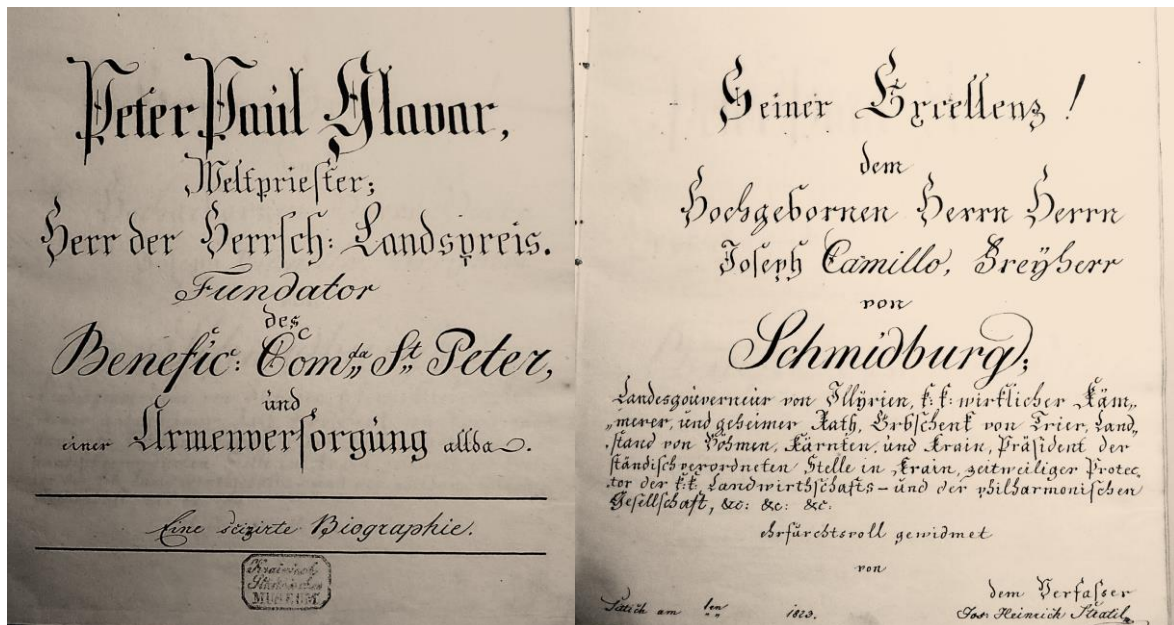 Peter Paul Glavar,
Weltpriester;
Herr der Herrsch: Landspreis.
Fundator
des
Benefic: Com„da St„ Peter,
und
einer Armenversorgung allda.
Eine scizirte Biographie.
Krainisch
Ständisches
MUSEUM
Seiner Excellenz!
dem
Hochgebornen Herrn Herrn
Joseph Camillo, Freÿherr
von
Schmidburg;
Landesgouverneur von Illÿrien, k: k: wirklicher Käm„
„merer, und geheimer Rath, Erbschenk von Trier, Land„
„stand von Böhmen, Kärnten und Krain, Präsident der
ständisch verordneten Stelle in Krain, zeitweiliger Protec„
tor der k:k: Landwirthschafts- und der philharmonischen
Gesellschaft, &c: &c: &c:
ehrfurchtsvoll gewidmet
von
dem Verfasser
Sittich am 1en
Jos: Heinrich Stratil